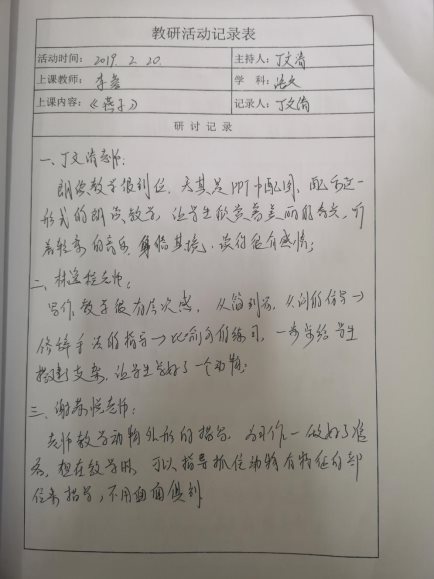 教研活动记录表
活动时间: 2019. 2. 20. 主持人: 丁文清
上课教师: 李 学 科: 语文
上课内容: 《燕子》 记录人: 丁文清
研 讨 记 录
一、丁文清老师:
朗读教学很到位, 尤其是PPT中配图、配乐这一
形式的朗读教学, 让学生欣赏着美丽的春光, 听
着轻柔的音乐, 身临其境, 读得很有感情;
二、林老师:
写作教学很有层次感, 从简到
修辞手法的指导→比喻句的练习, 一步步给学生
搭建支架, 让学生写好了一个动物;
三、谢老师:
老师教学动物外形的指导, 为习作一做好了准
备, 想在教学时, 可以指导抓住动物有特征的部
位来指导, 不用面面俱到